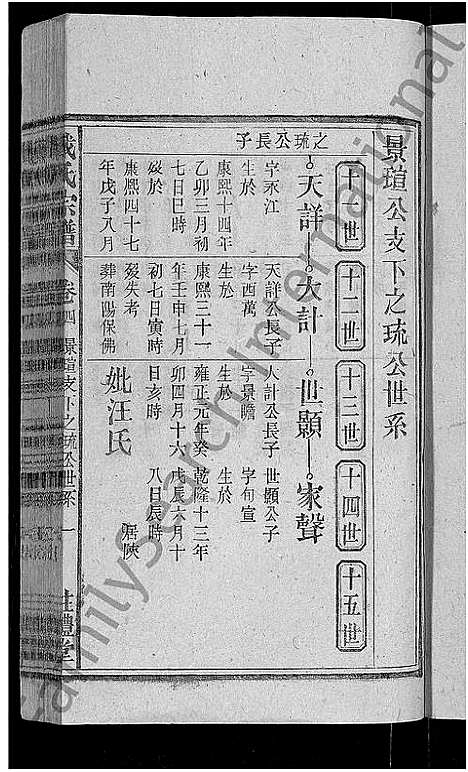 景瑄公支下之琉公世系
十一世
十二世
十三世
十四世
十五世
之琉公長子
天詳
大計
世顯
家聲
字永江
生於
康熙十四年
乙卯三月初
七日巳時
歿於
康熙四十七
年戊子八月
天詳公長子
字酉萬
生於
康熙三十一
年壬申七月
初七日寅時
歿失考
葬南陽保佛
大計公長子
字景瞻
生於
雍正元年癸
卯四月十六
日亥時
妣汪氏
世顯公子
字旬宣
生於
乾隆十三年
戊辰六月十
八日辰時
居陝
戴氏宗譜
卷四
景瑄支下之琉公世系
一
禮堂
familysearch International